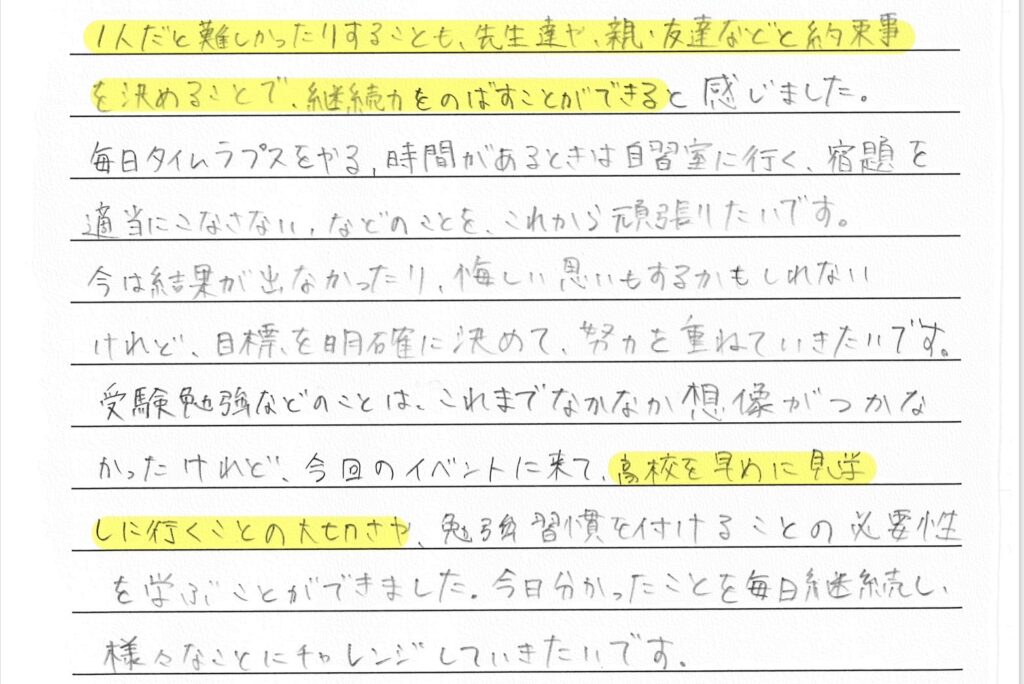 1人だと難しかったりすることも、先生達や、親・友達などと約束事
を決めることで、継続力をのばすことができると感じました。
毎日タイムラプスをやる，時間があるときは自習室に行く、宿題を
適当にこなさない，などのことを、これから頑張りたいです。
今は結果が出なかったり、悔しい思いもするかもしれない
けれど、目標を明確に決めて、努力を重ねていきたいです。
受験勉強などのことは、これまでなかなか想像がつかな
かったけれど、今回のイベントに来て、高校を早めに見学
しに行くことの大切さや、勉強習慣を付けることの必要性
を学ぶことができました。今日分かったことを毎日継続し、
様々なことにチャレンジしていきたいです。